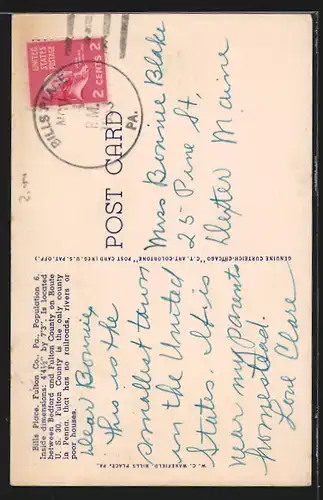 Bills Place, Fulton Co., Pa. Population 6.
Inside dimensions: 4'4½" by 7'3". Is located
between Bedford and Fulton County on Route
U. S. 30. Fulton County is the only county
in Penna. that has no railroads, rivers or
poor houses.
Dear Bonnie,
This is the
smallest town
in the United
States. It is
near my parents
homestead.
Love Clare
POST CARD
GENUINE CURTEICH-CHICAGO "C.T. ART-COLORTONE" POST CARD (REG. U.S. PAT. OFF.)
W. C. WAKEFIELD, BILLS PLACE, PA.
UNITED
STATES
POSTAGE
2 CENTS 2
BILLS PLACE
P.M.
PA.
Miss Bonnie Blake
25 Pine St.
Dexter Maine